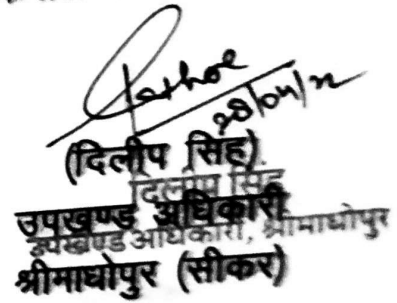 28/04/22
(दिलीप सिंह)
दिलीप सिंह
उपखण्ड अधिकारी
उपखण्ड अधिकारी, श्रीमाधोपुर
श्रीमाधोपुर (सीकर)